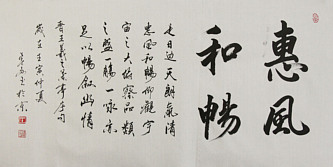 惠風
和暢
是日也天朗氣清
惠風和暢仰觀宇
宙之大俯察品類
之盛一觴一詠亦
足以暢敘幽情
晉王羲之蘭亭序句
歲在壬寅仲夏
於京